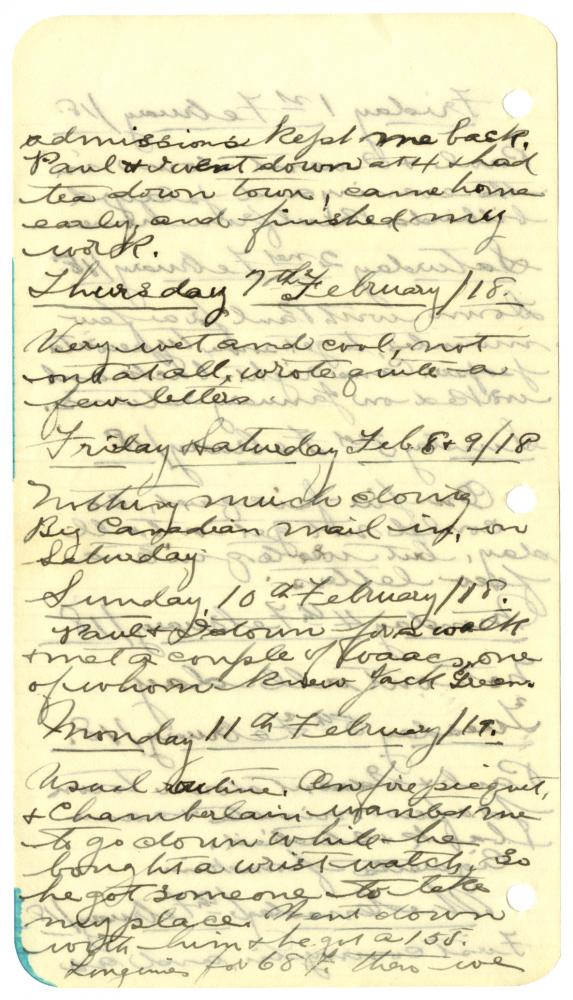 admissions kept me back.
Paul & I went down at 4 & had
tea down town, came home
early, and finished my
work.
Thursday 7th February/18.
Very wet and cool, not
out at all, wrote quite a
few letters
Friday & Saturday Feb 8 & 9/18
Nothing much doing
Big Canadian mail in, on
Saturday.
Sunday, 10th February/18.
Paul & I down for a walk
& met a couple of Waacs, one
of whom knew Jack Green.
Monday 11th February/18.
Usual routine. On fire picquet,
& Chamberlain wanted me
to go down while he
bought a wrist watch, so
he got someone to take
my place. Went down
with him & he got a 15J.
Longines for 68 f. then we